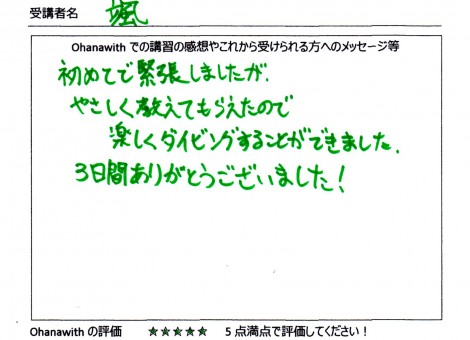 受講者名 颯
Ohanawith での講習の感想やこれから受けられる方へのメッセージ等
初めてで緊張しましたが、
やさしく教えてもらえたので
楽しくダイビングすることができました.
3日間ありがとうございました!
Ohanawith の評価 ★★★★★ 5点満点で評価してください!